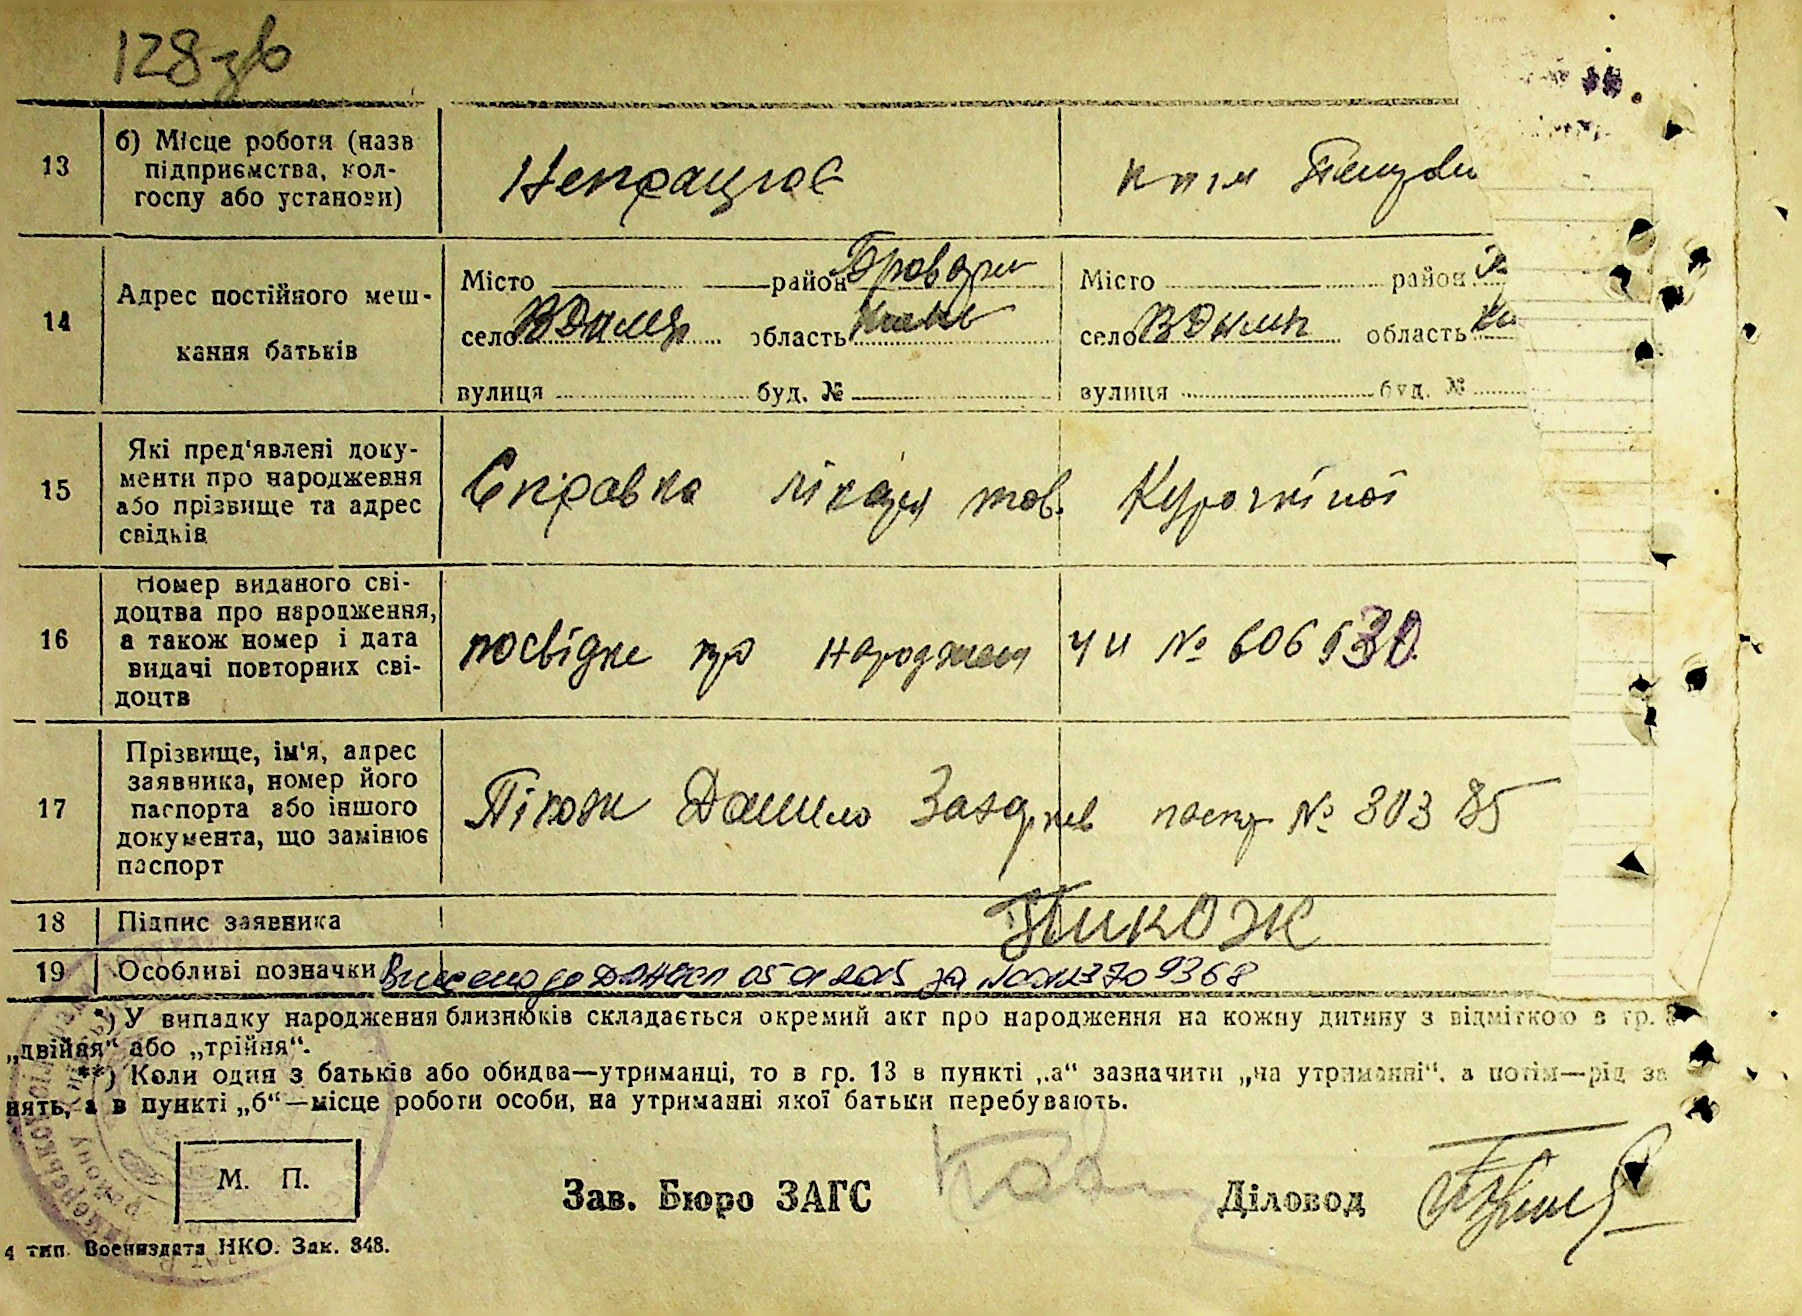 128 зв
13 б) Місце роботи (назв підприємства, колгоспу або установи) Непрацює
14 Адрес постійного мешкання батьків
Місто район Бровари Місто район
село ВДимер область Київ село ВДимер область Ки
вулиця буд. № вулиця буд. №
15 Які пред'явлені документи про народження або прізвище та адрес свідків Справка лікаря тов. Курочкіної
16 Номер виданого свідоцтва про народження, а також номер і дата видачі повторних свідоцтв посвідке про народжен ЧИ № 606930
17 Прізвище, ім'я, адрес заявника, номер його паспорта або іншого документа, що замінює паспорт Пікож Данило Захаров паспор № 80385
18 Підпис заявника Пикож
19 Особливі позначки Внесено до ДРАЦСГ 05 01 2015 за
*) У випадку народження близнюків складається окремий акт про народження на кожну дитину з відміткою в гр. 3
„двійня" або „трійня".
**) Коли один з батьків або обидва—утриманці, то в гр. 13 в пункті „а" зазначити „на утриманні", а потім—рід за
нять, а в пункті „б"—місце роботи особи, на утриманні якої батьки перебувають.
М. П.
Зав. Бюро ЗАГС Діловод
4 тип. Воениздата НКО. Зак. 848.